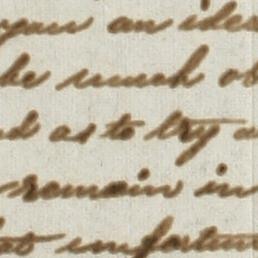 you an idea
be much ob
nd as to try a
remain in
at unfortun